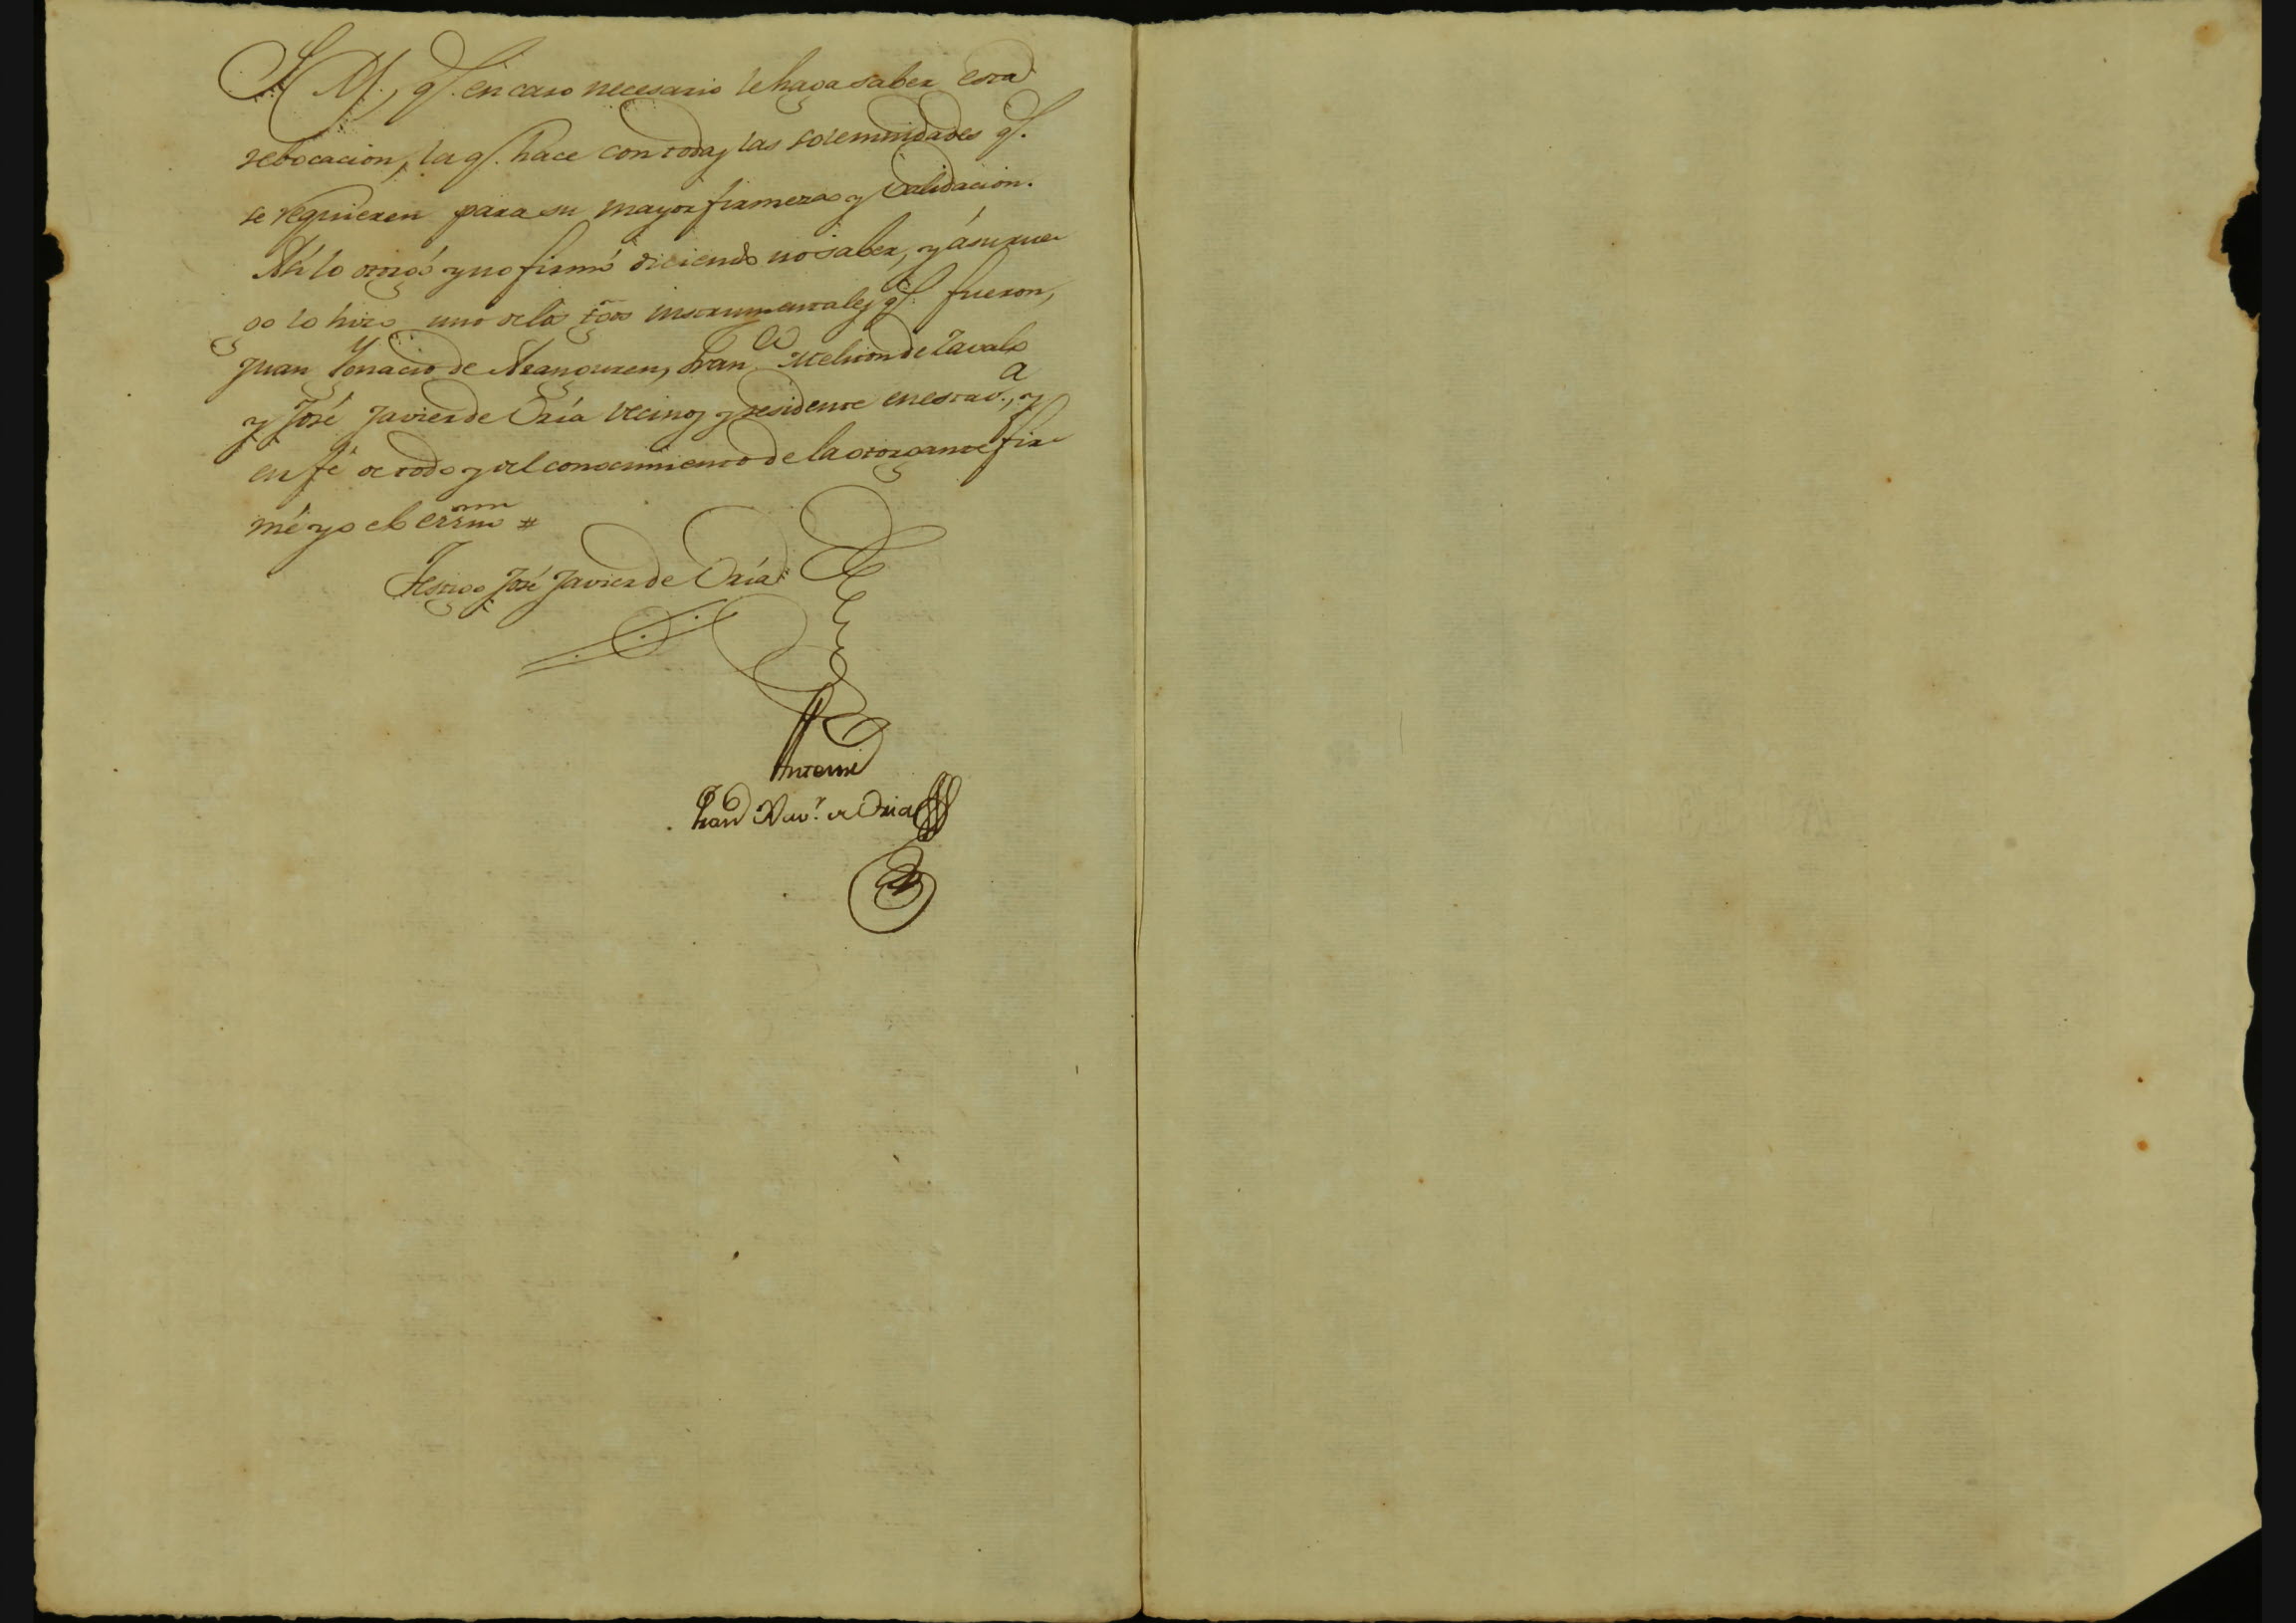 S. M., qe. en caso necesario le haga saber esta
rebocacion, la qe. hace con todas las solemnidades qe.
se requieren para su mayor firmeza y validacion.
Así lo otorgó y no firmó diciendo no saber, y á su rue-
go lo hizo uno de los tgos instrumentales qe. fueron,
Juan Ygnacio de Aranguren, Franco. Melchor de Zavala
y José Javier de Oria vecinos y residente en esta va., y
en fé de todo y del conocimiento de la otorgante fir-
mé yo el essno #
Testigo José Javier de Oria
Antemi
Fran Xavr. de Oria